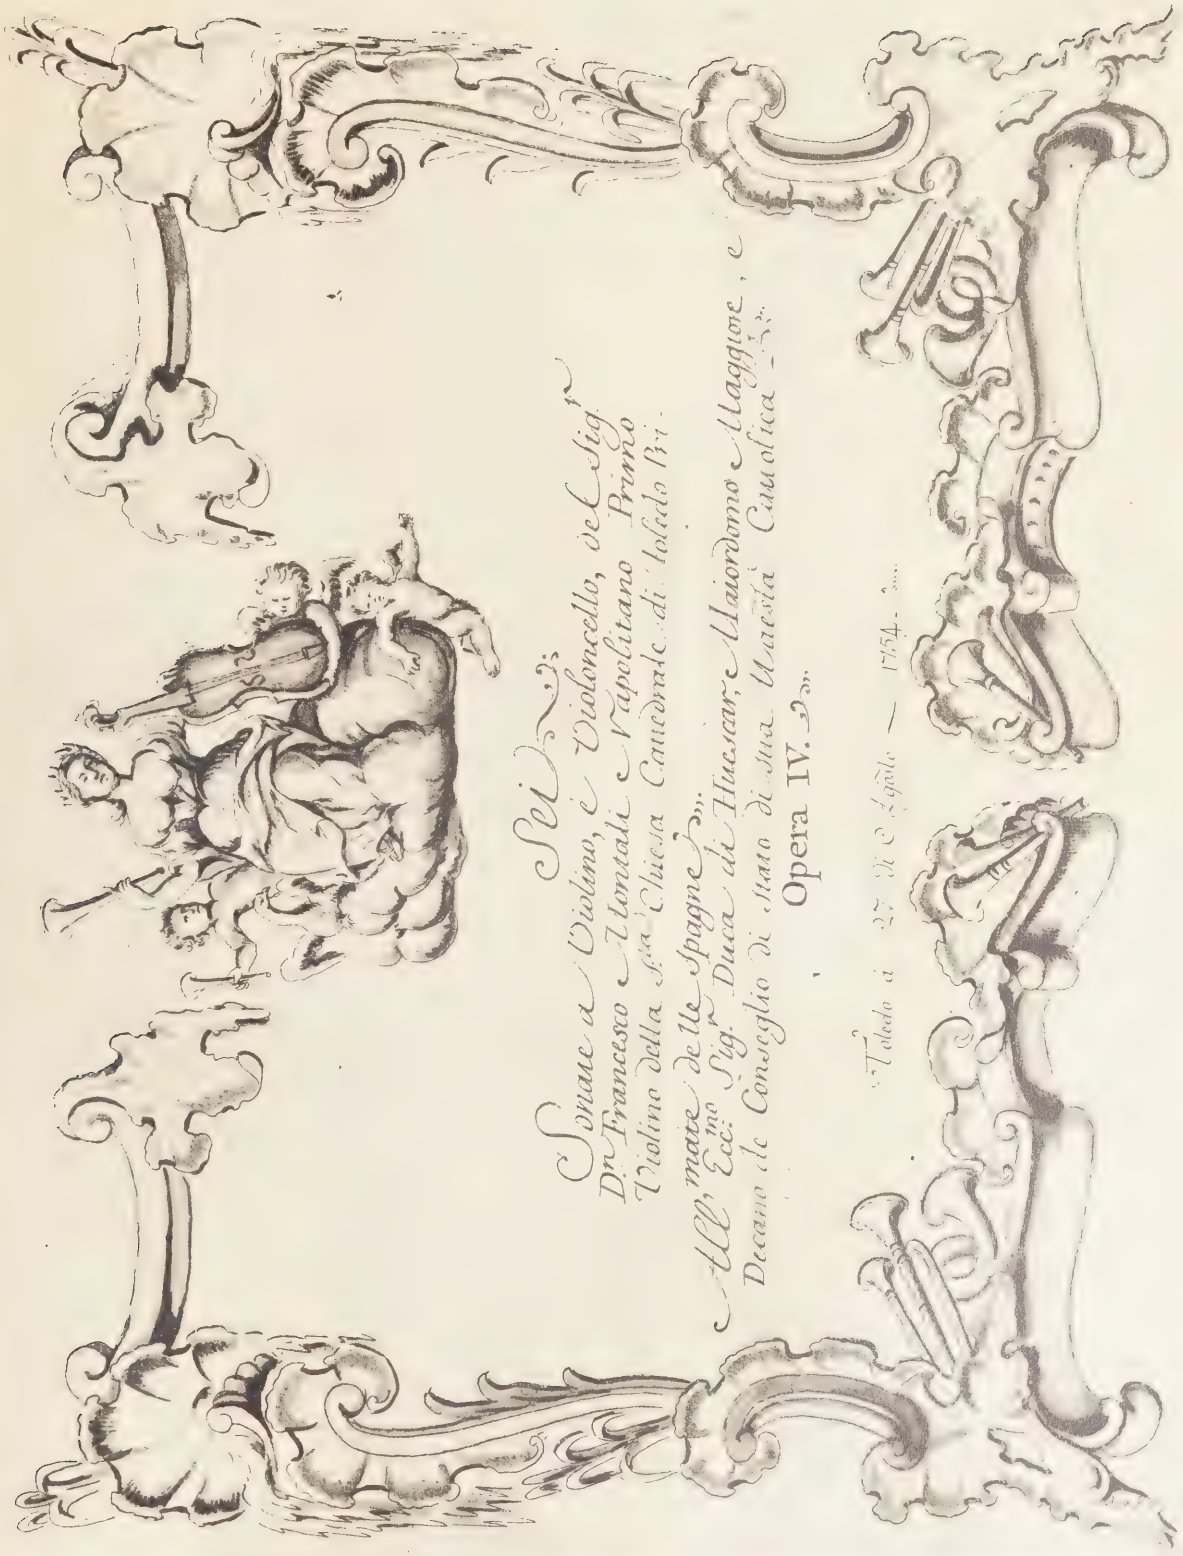 Sei
Sonate a Violino, é Violoncello, del Sig.r
D.n Francesco Montali Napolitano Primo
Violino della S.ta Chiesa Catedrale di Toledo Pri-
mate delle Spagne
All, Ecc.mo Sig.r Duca di Huescar, Maiordomo Maggiore, e
Decano de Conseglio di Stato di sua Maestà Cattolica
Opera IV.
Toledo à 27 di 1754.